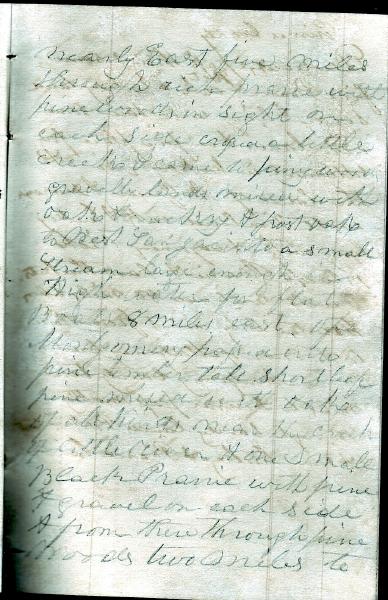 nearly East five miles
through rich prarie with
pine woods in sight on
each side cross a little
creek & came to piney woods
gravelle lands mixed with
oaks & hickry & post oak
to West San jacinto a small
stream large enough in
High water for flat
Boats 8 miles east of
Montgomery passed into
pine timber tall short leaf
pine mixed with oaks
of all kinds near the creek
& little river & one small
Black Prarie with pine
& gravel on each side
& from thence through pine
woods two miles to